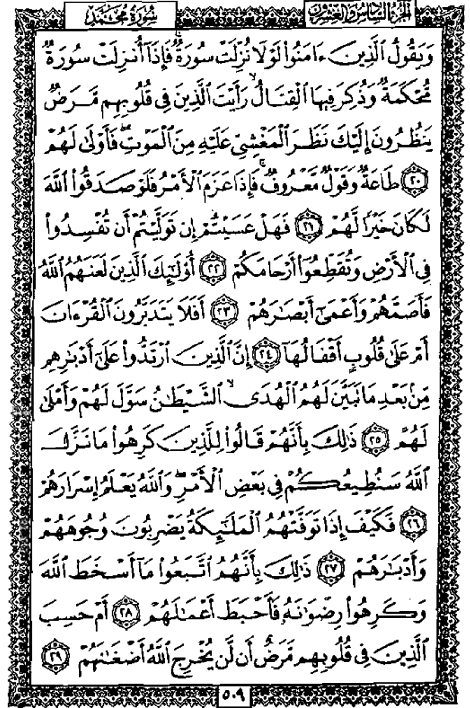 الجزء السادس والعشرون
سورة محمد
وَيَقُولُ الَّذِينَ ءَامَنُوا لَوْلَا نُزِّلَتْ سُورَةٌ ۖ فَإِذَا أُنزِلَتْ سُورَةٌ
مُّحْكَمَةٌ وَذُكِرَ فِيهَا الْقِتَالُ ۙ رَأَيْتَ الَّذِينَ فِي قُلُوبِهِم مَّرَضٌ
يَنظُرُونَ إِلَيْكَ نَظَرَ الْمَغْشِيِّ عَلَيْهِ مِنَ الْمَوْتِ ۖ فَأَوْلَىٰ لَهُمْ
۝٢٠ طَاعَةٌ وَقَوْلٌ مَّعْرُوفٌ ۚ فَإِذَا عَزَمَ الْأَمْرُ فَلَوْ صَدَقُوا اللَّهَ
لَكَانَ خَيْرًا لَّهُمْ ۝٢١ فَهَلْ عَسَيْتُمْ إِن تَوَلَّيْتُمْ أَن تُفْسِدُوا
فِي الْأَرْضِ وَتُقَطِّعُوا أَرْحَامَكُمْ ۝٢٢ أُولَٰئِكَ الَّذِينَ لَعَنَهُمُ اللَّهُ
فَأَصَمَّهُمْ وَأَعْمَىٰ أَبْصَارَهُمْ ۝٢٣ أَفَلَا يَتَدَبَّرُونَ الْقُرْءَانَ
أَمْ عَلَىٰ قُلُوبٍ أَقْفَالُهَا ۝٢٤ إِنَّ الَّذِينَ ارْتَدُّوا عَلَىٰ أَدْبَارِهِم
مِّن بَعْدِ مَا تَبَيَّنَ لَهُمُ الْهُدَى ۙ الشَّيْطَانُ سَوَّلَ لَهُمْ وَأَمْلَىٰ
لَهُمْ ۝٢٥ ذَٰلِكَ بِأَنَّهُمْ قَالُوا لِلَّذِينَ كَرِهُوا مَا نَزَّلَ
اللَّهُ سَنُطِيعُكُمْ فِي بَعْضِ الْأَمْرِ ۖ وَاللَّهُ يَعْلَمُ إِسْرَارَهُمْ
۝٢٦ فَكَيْفَ إِذَا تَوَفَّتْهُمُ الْمَلَائِكَةُ يَضْرِبُونَ وُجُوهَهُمْ
وَأَدْبَارَهُمْ ۝٢٧ ذَٰلِكَ بِأَنَّهُمُ اتَّبَعُوا مَا أَسْخَطَ اللَّهَ
وَكَرِهُوا رِضْوَانَهُ فَأَحْبَطَ أَعْمَالَهُمْ ۝٢٨ أَمْ حَسِبَ
الَّذِينَ فِي قُلُوبِهِم مَّرَضٌ أَن لَّن يُخْرِجَ اللَّهُ أَضْغَانَهُمْ ۝٢٩
٥٠٩